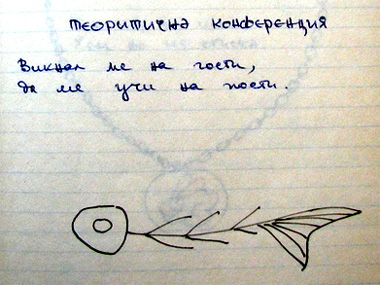 теоритична конференция
Викнал ме на гости,
да ме учи на пости.